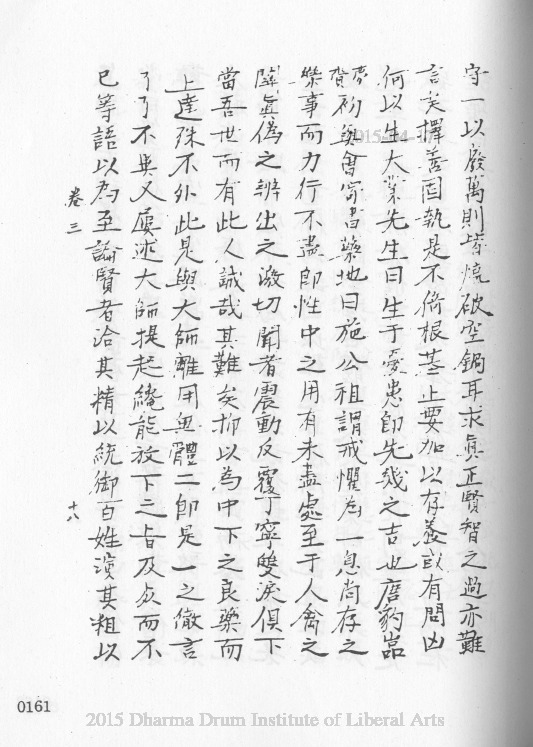 守一以廢萬則皆燒破空鍋耳求真正賢智之過亦難
言矣擇善固執是不倚根基止要加以存養或有問凶
何以生大業先生曰生于憂患即先幾之吉也唐豹嵒
賀初與會寄書藥地曰施公祖謂戒懼為一息尚存之
樂事而力行不盡即性中之用有未盡處至于人禽之
關眞偽之辨出之激切聞者震動反覆丁寧雙淚俱下
當吾世而有此人誠哉其難矣抑以為中下之良藥而
上達殊不外此是與大師離用無體二即是一之徹言
了了不異又屢述大師提起纔能放下之旨及亥而不
已等語以為至論賢者治其精以統御百姓演其粗以
卷三
十八
0161
2015 Dharma Drum Institute of Liberal Arts